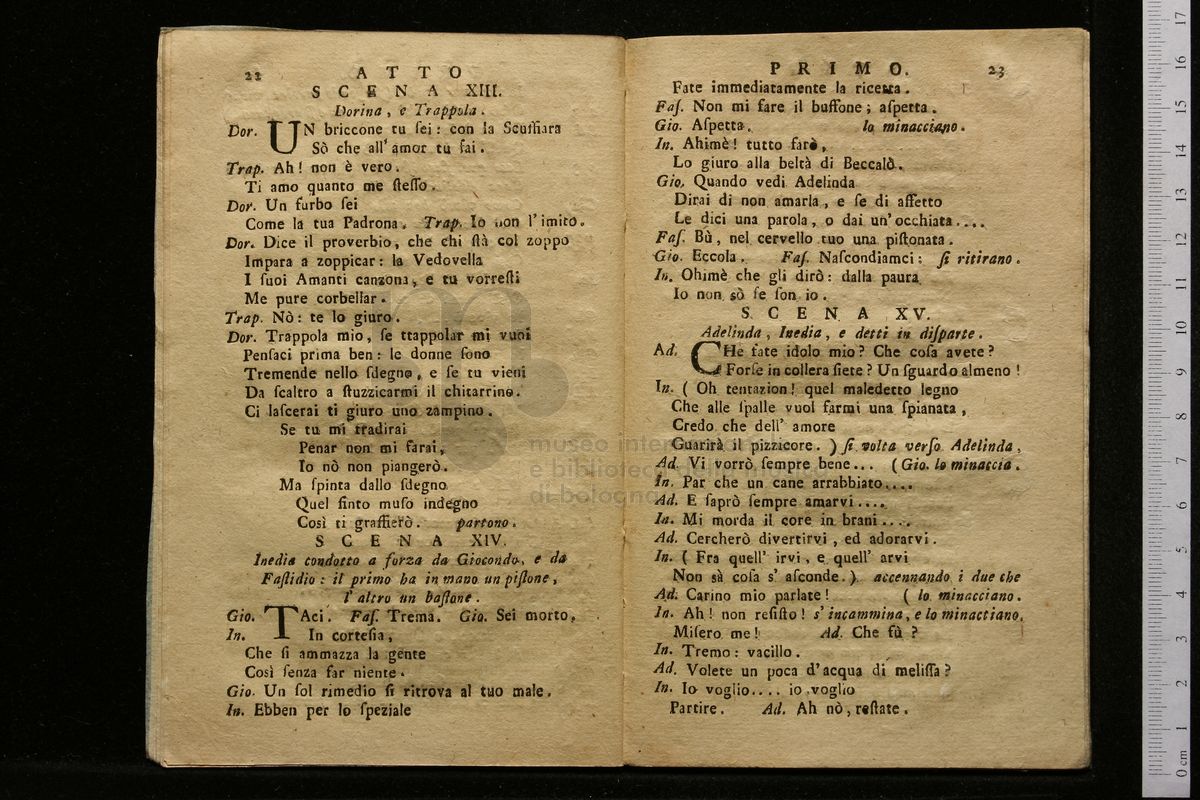 22
A T T O
S C E N A XIII.
Dorina, e Trappola.
Dor. UN briccone tu ſei: con la Scuffiara
Sò che all' amor tu fai.
Trap. Ah! non è vero.
Ti amo quanto me ſteſſo.
Dor. Un furbo ſei
Come la tua Padrona. Trap. Io non l'imito.
Dor. Dice il proverbio, che chi ſtà col zoppo
Impara a zoppicar: la Vedovella
I ſuoi Amanti canzona, e tu vorreſti
Me pure corbellar.
Trap. Nò: te lo giuro.
Dor. Trappola mio, ſe ttappolar mi vuoi
Penſaci prima ben: le donne ſono
Tremende nello ſdegno, e ſe tu vieni
Da ſcaltro a ſtuzzicarmi il chitarrino.
Ci laſcerai ti giuro uno zampino.
Se tu mi tradirai
Penar non mi farai,
Io nò non piangerò.
Ma ſpinta dallo ſdegno
Quel finto muſo indegno
Così ti graffierò. partono.
S C E N A XIV.
Inedia condotto a forza da Giocondo, e da
Faſtidio: il primo ha in mano un piſtone,
l' altro un baſtone.
Gio. TAci. Faſ. Trema. Gio. Sei morto,
In. In corteſia,
Che ſi ammazza la gente
Così ſenza far niente.
Gio. Un ſol rimedio ſi ritrova al tuo male.
In. Ebben per lo ſpeziale
P R I M O. 23
Fate immediatamente la ricetta.
Faſ. Non mi fare il buffone; aſpetta.
Gio. Aſpetta. lo minacciano.
In. Ahimè! tutto farò,
Lo giuro alla beltà di Beccalò.
Gio. Quando vedi Adelinda
Dirai di non amarla, e ſe di affetto
Le dici una parola, o dai un' occhiata....
Faſ. Bù, nel cervello tuo una piſtonata.
Gio. Eccola. Faſ. Naſcondiamci: ſi ritirano.
In. Ohimè che gli dirò: dalla paura
Io non sò ſe ſon io.
S C E N A XV.
Adelinda, Inedia, e detti in diſparte.
Ad. CHe fate idolo mio? Che coſa avete?
Forſe in collera ſiete? Un ſguardo almeno!
In. ( Oh tentazion! quel maledetto legno
Che alle ſpalle vuol farmi una ſpianata,
Credo che dell' amore
Guarirà il pizzicore. ) ſi volta verſo Adelinda,
Ad. Vi vorrò ſempre bene... ( Gio. lo minaccia.
In. Par che un cane arrabbiato....
Ad. E ſaprò ſempre amarvi....
In. Mi morda il core in brani....
Ad. Cercherò divertirvi, ed adorarvi.
In. ( Fra quell' irvi, e quell' arvi
Non sà coſa s' aſconde. ) accennando i due che
Ad. Carino mio parlate! ( lo minacciano.
In. Ah! non reſiſto! s' incammina, e lo minacciano.
Miſero me! Ad. Che fù?
In. Tremo: vacillo.
Ad. Volete un poca d'acqua di meliſſa?
In. Io voglio.... io voglio
Partire. Ad. Ah nò, reſtate.
museo internazionale
e biblioteca della musica
di bologna
0 cm 1 2 3 4 5 6 7 8 9 10 11 12 13 14 15 16 17